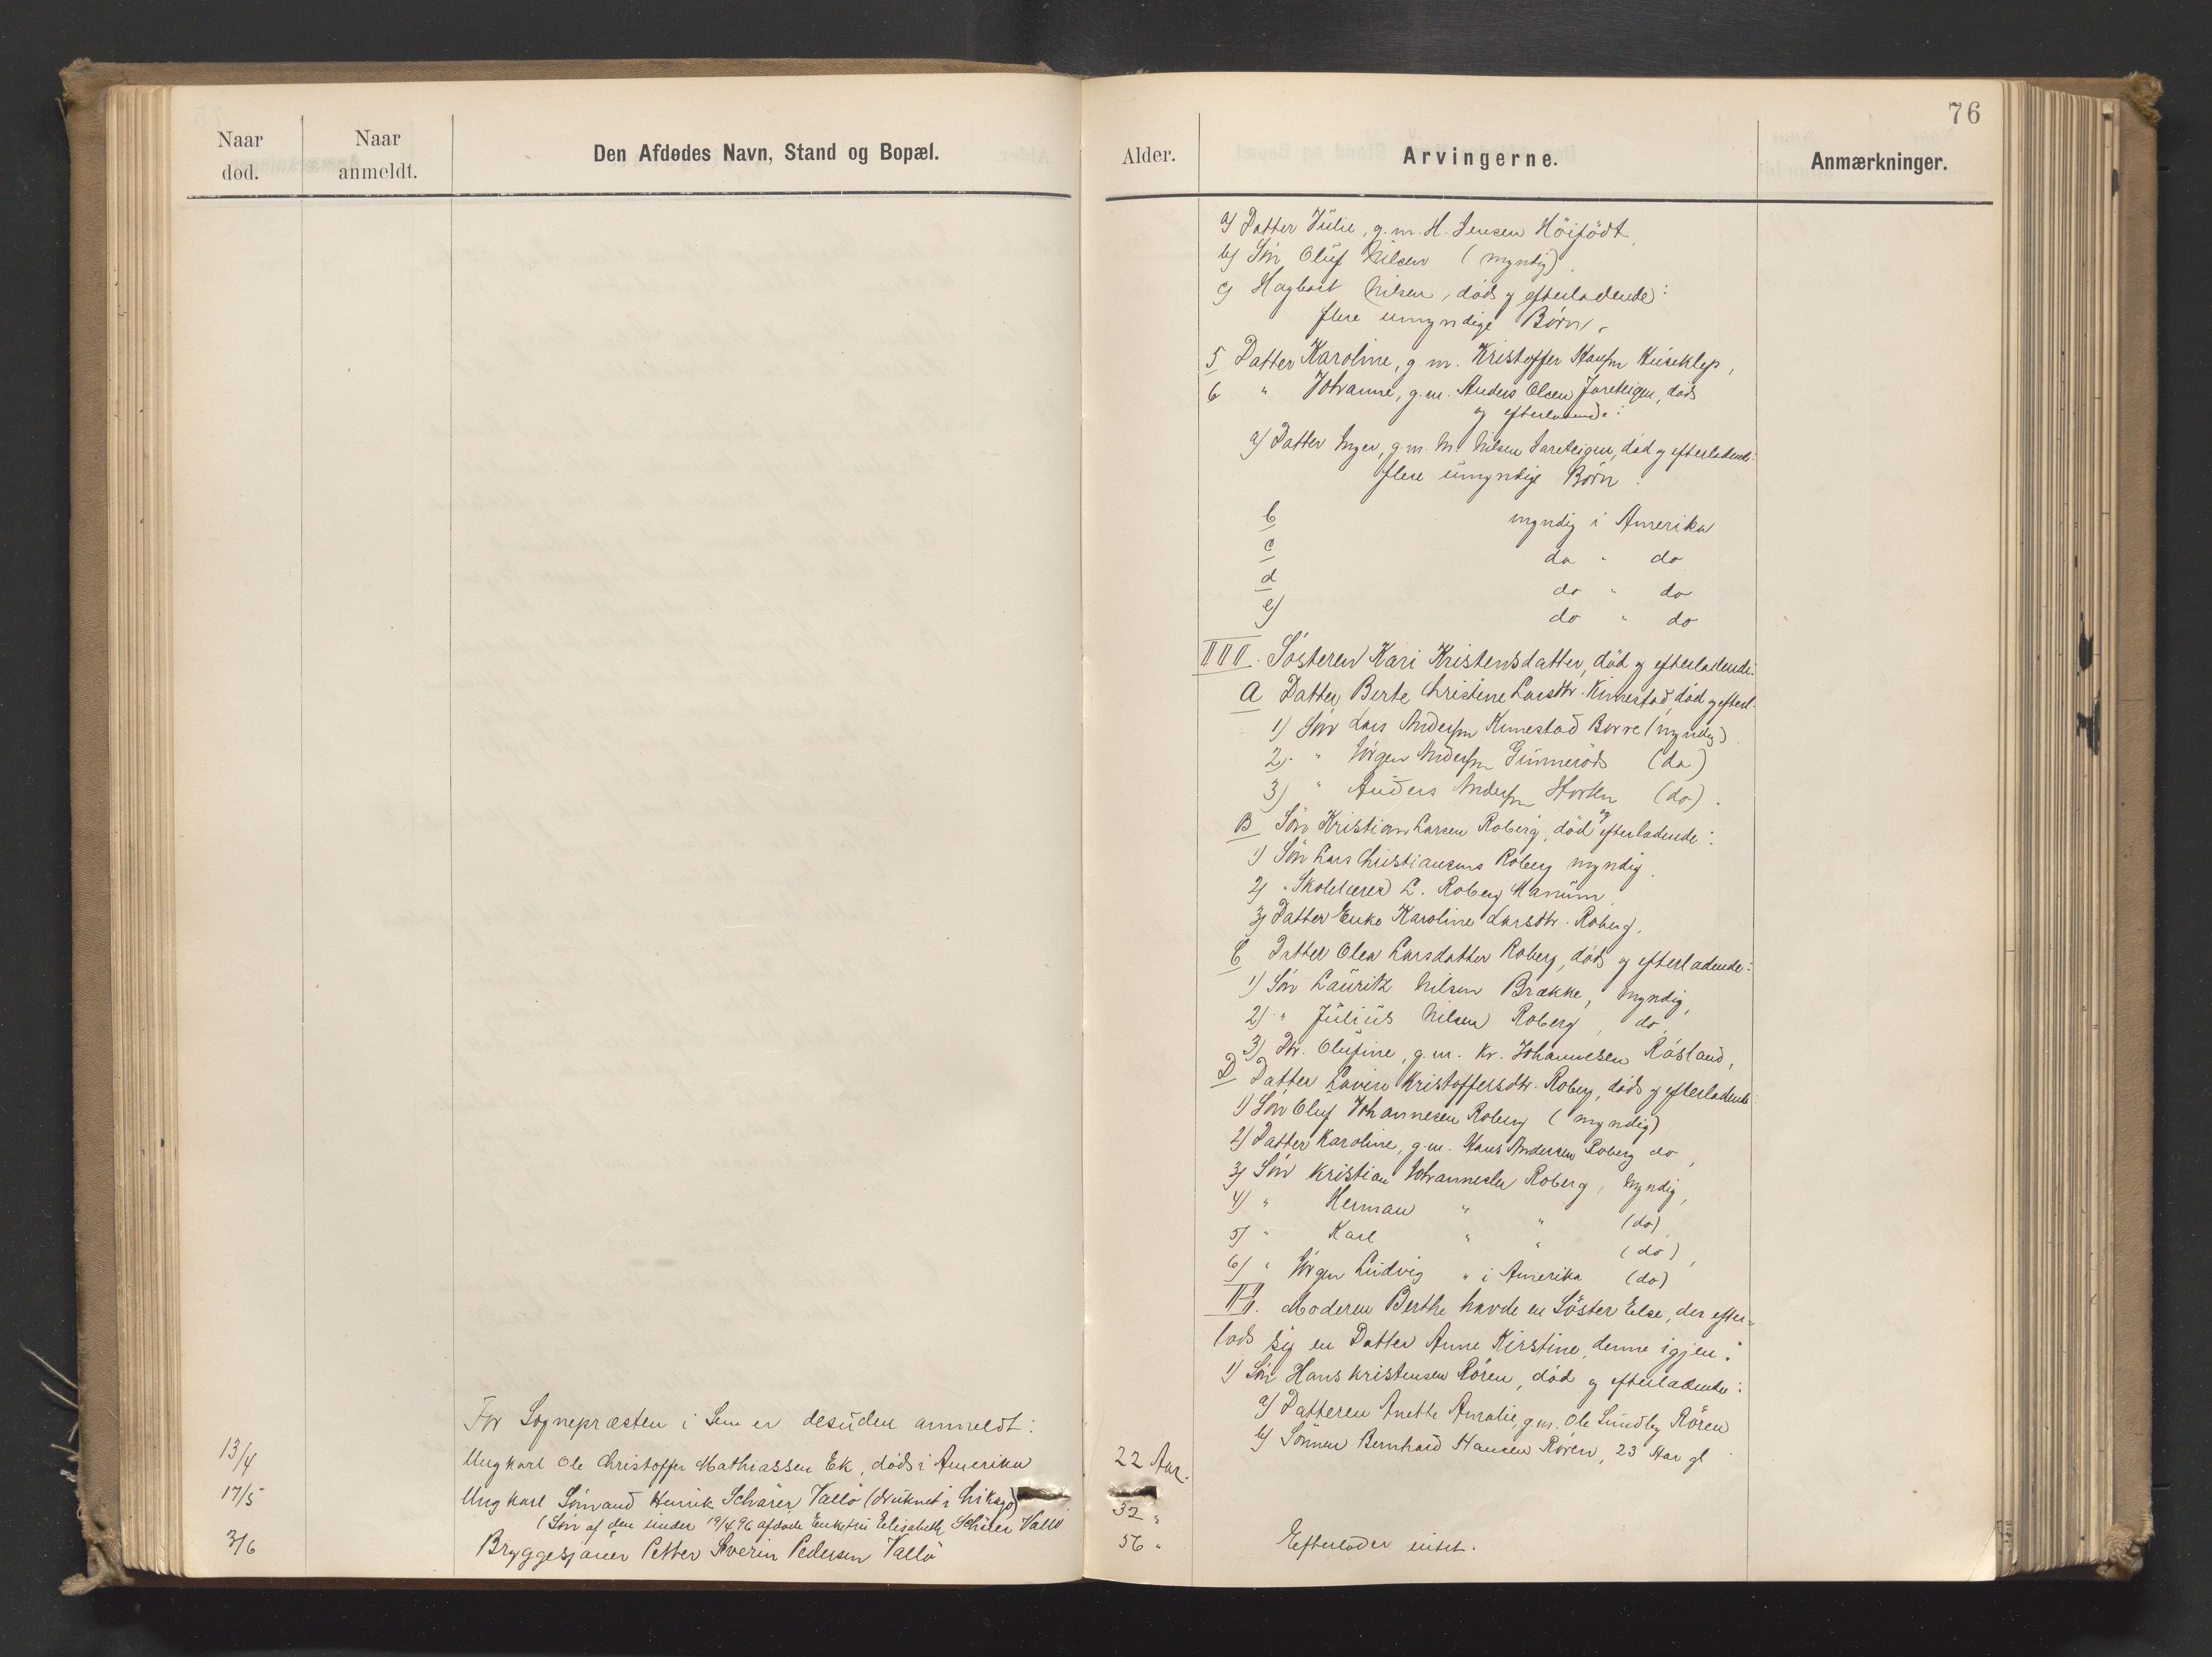 76
Naar død.
Naar anmeldt.
Den Afdødes Navn, Stand og Bopæl.
Alder.
Arvingerne.
Anmærkninger.
For Sognepræsten i Sem er desuden anmeldt:
13/4 Ungkarl Ole Christoffer Mathiassen Ek, død i Amerika 22 Aar.
17/5 Ungkarl Sömand Henrik Schärer Vallö (druknet i Chikago) 32 "
(Sön af den under 19/4 96 afdöde Enkefru Elisabeth Schärer Vallö
3/6 Bryggesjauer Petter Severin Pedersen Vallö 56 " Efterlader intet.
a) Datter Julie, g. m. H. Jensen Höijödt,
b) Sön Oluf Nilsen (myndig),
c) Hagbart Nilsen, död og efterladende:
flere umyndige Börn.
5 Datter Karoline, g. m. Kristoffer Hansen Huseklep,
6 " Johanne, g. m. Anders Olsen Jareteigen, död
og efterladende:
a) Datter Inger, g. m. M. Nilsen Jareteigen, död og efterladende:
flere umyndige Börn.
b myndig i Amerika
c do " do
d do " do
e) do " do
III. Sösteren Kari Kristensdatter, död og efterladende:
A Datter Berte Christine Larsdtr. Kimestad, död og efterl.
1) Sön Lars Andersen Kimestad Borre (myndig)
2) " Jörgen Andersen Gunneröd (do)
3) " Anders Andersen Horten (do).
B Sön Kristian Larsen Roberg, död og efterladende:
1) Sön Lars Christiansens Roberg myndig.
2) " Skolelærer L. Roberg Manum
3) Datter Enke Karoline Larsdtr. Roberg.
C Datter Olea Larsdatter Roberg, död og efterladende:
1) Sön Lauritz Nilsen Brække, myndig,
2) " Julius Nilsen Roberg, do,
3) Dtr. Olufine, g. m. Kr. Johannesen Råstad,
D Datter Lovise Kristoffersdtr. Roberg, död og efterladende:
1) Sön Oluf Johannesen Roberg (myndig)
2) Datter Karoline, g. m. Hans Andersen Roberg do,
3) Sön Kristian Johannesen Roberg, myndig,
4) " Herman " " (do),
5) " Karl " " (do),
6) " Jörgen Ludvig " i Amerika (do)
IV. Moderen Berthe havde en Söster Else, der efter-
lod sig en Datter Anne Kirstine, denne igjen:
1) Sön Hans Kristensen Rören, död og efterladende:
a) Datteren Anette Amalie, g.m. Ole Sundby Rören
b) Sönnen Bernhard Hansen Rören, 23 Aar gl